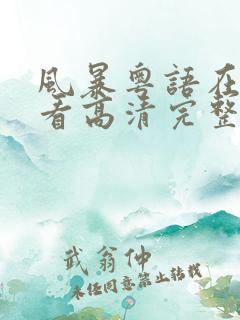 風暴粵語在
看高清完整
武翁仲
未经同意禁止转载